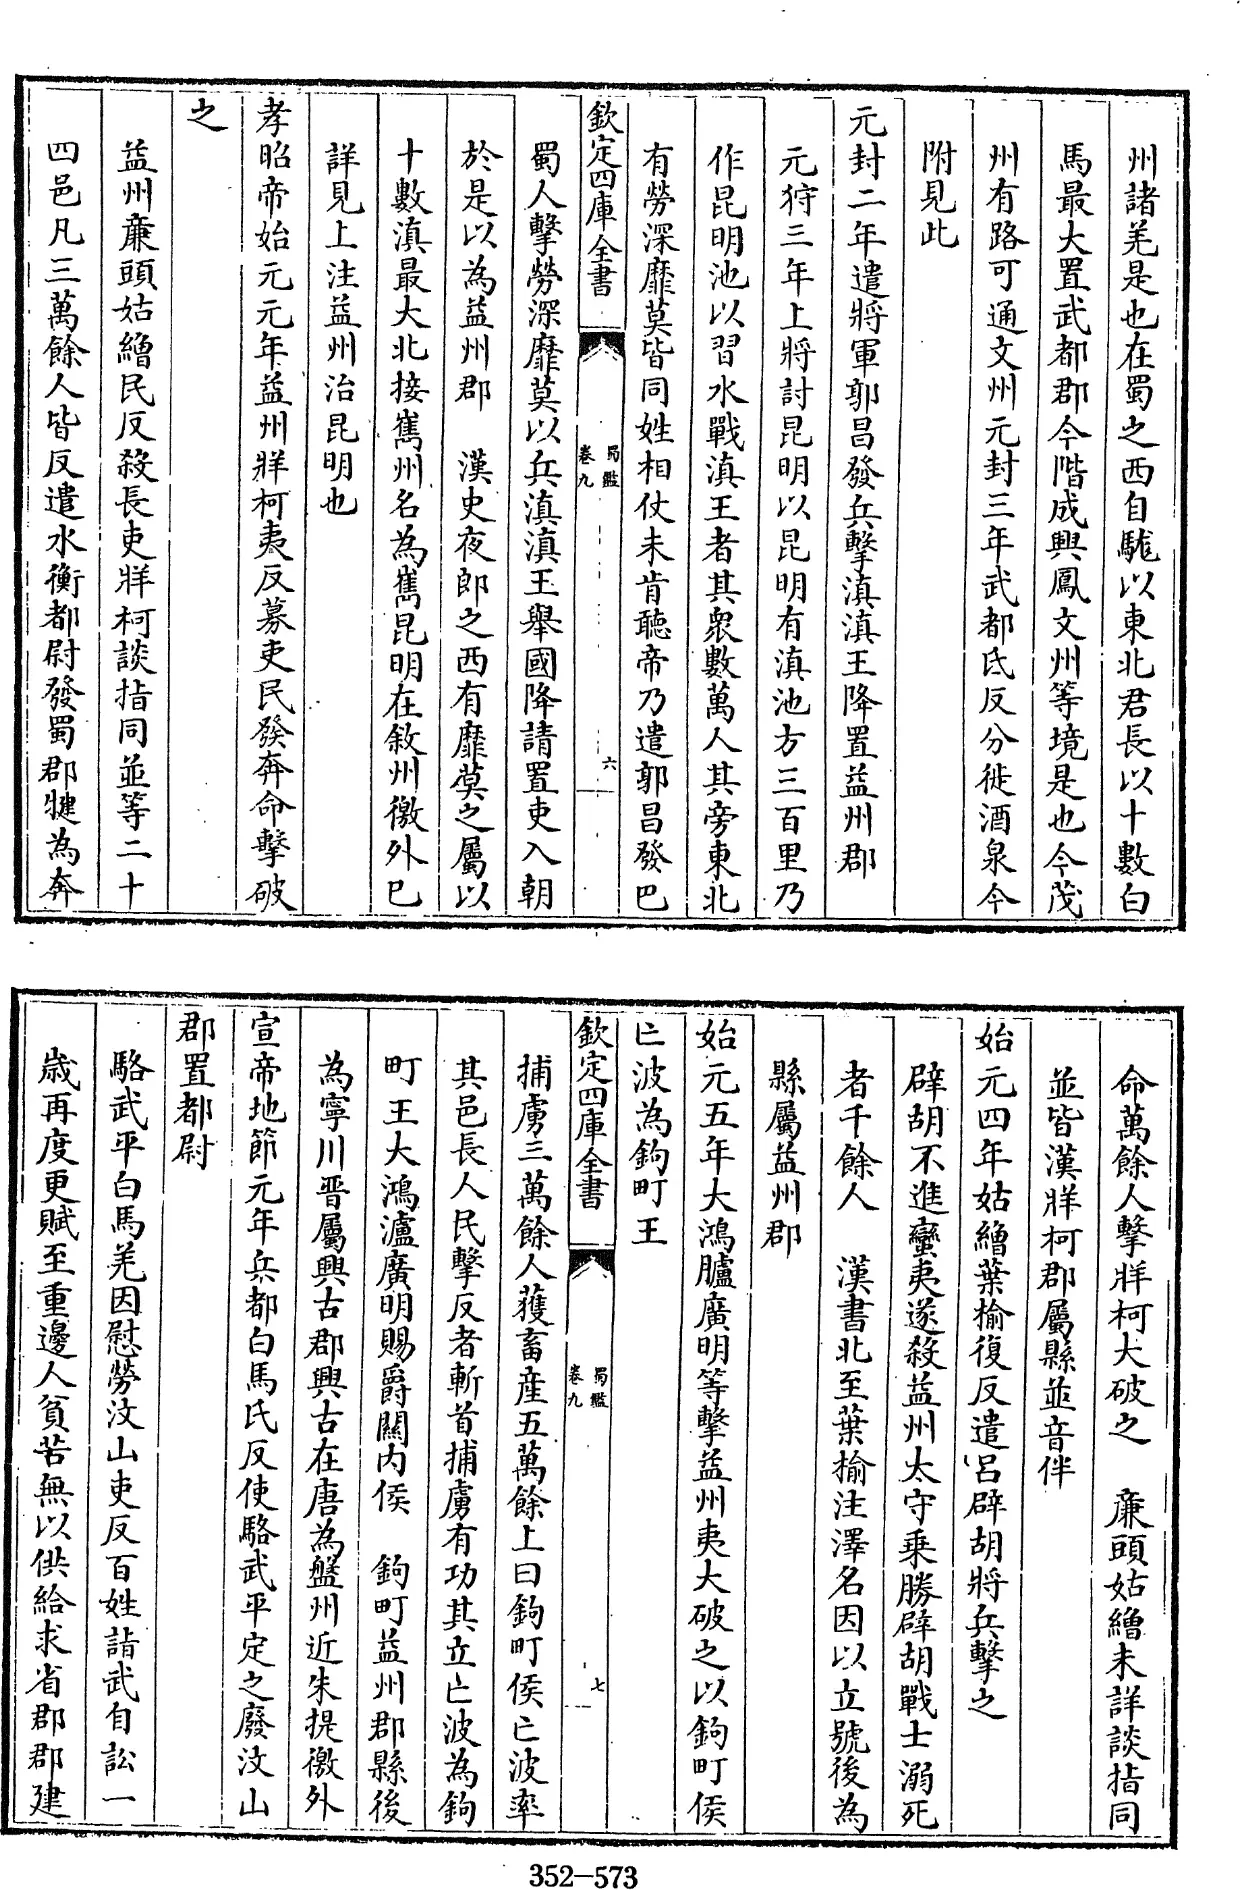 州諸羌是也在蜀之西自駹以東北君長以十數白
馬最大置武都郡今階成興鳳文州等境是也今茂
州有路可通文州元封三年武都氐反分徙酒泉今
附見此
元封二年遣將軍郭昌發兵擊滇滇王降置益州郡
元狩三年上將討昆明以昆明有滇池方三百里乃
作昆明池以習水戰滇王者其衆數萬人其旁東北
有勞深靡莫皆同姓相仗未肯聽帝乃遣郭昌發巴
欽定四庫全書
蜀鑑
卷九
六
蜀人擊勞深靡莫以兵滇滇王舉國降請置吏入朝
於是以為益州郡　漢史夜郎之西有靡莫之屬以
十數滇最大北接巂州名為巂昆明在敘州徼外巳
詳見上注益州治昆明也
孝昭帝始元元年益州牂柯夷反募吏民發奔命擊破
之
益州亷頭姑繒民反殺長吏牂柯談指同並等二十
四邑凡三萬餘人皆反遣水衡都尉發蜀郡犍為奔
命萬餘人擊牂柯大破之　亷頭姑繒未詳談指同
並皆漢牂柯郡屬縣並音伴
始元四年姑繒葉榆復反遣吕辟胡將兵擊之
辟胡不進蠻夷遂殺益州太守乗勝辟胡戰士溺死
者千餘人　漢書北至葉榆注澤名因以立號後為
縣屬益州郡
始元五年大鴻臚廣明等擊益州夷大破之以鉤町侯
亡波為鉤町王
欽定四庫全書
蜀鑑
卷九
七
捕虜三萬餘人獲畜産五萬餘上曰鉤町侯亡波率
其邑長人民擊反者斬首捕虜有功其立亡波為鉤
町王大鴻瀘廣明賜爵關内侯　鉤町益州郡縣後
為寧川晋屬興古郡興古在唐為盤州近朱提徼外
宣帝地節元年兵都白馬氐反使駱武平定之廢汶山
郡置都尉
駱武平白馬羌因慰勞汶山吏反百姓詣武自訟一
歳再度更賦至重邊人貧苦無以供給求省郡郡建
352-573